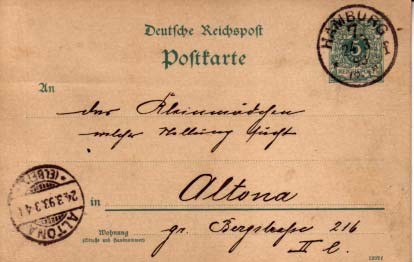 Deutsche Reichspost
Postkarte
HAMBURG 1
7.
5
An
das Kleinmädchen
welches Stellung sucht
in Altona
ALTONA
(ELBE)
24.3.93.3-4N
Wohnung
(Straße und Hausnummer)
gr. Bergstrasse 216
II l.